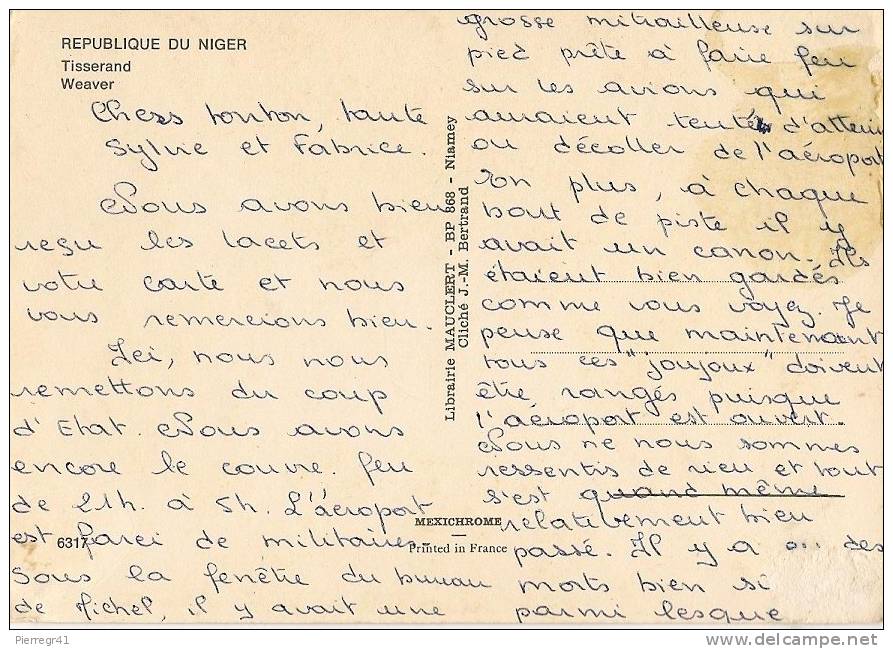 REPUBLIQUE DU NIGER
Tisserand
Weaver
Chers tonton, tante
Sylvie et Fabrice.
Nous avons bien
reçu les lacets et
votre carte et nous
vous remercions bien.
Ici, nous nous
remettons du coup
d'Etat. Nous avons
encore le couvre. feu
de 21h. à 5h. L'aéroport
est farci de militaires.
Sous la fenêtre du bureau
de Michel, il y avait une
6317
Librairie MAUCLERT - BP 868 - Niamey
Cliché J.-M. Bertrand
MEXICHROME
Printed in France
grosse mitrailleuse sur
pied prête à faire feu
sur les avions qui
auraient tenté d'atterrir
ou décoller de l'aéroport
En plus, à chaque
bout de piste il y
avait un canon. Ils
étaient bien gardés
comme vous voyez. Je
pense que maintenant
tous ces "joujoux" doivent
être rangés puisque
l'aéroport est ouvert.
Nous ne nous sommes
ressentis de rien et tout
s'est quand même
relativement bien
passé. Il y a ... des
morts bien si
parmi lesque
Pierregr41
www.delcampe.net